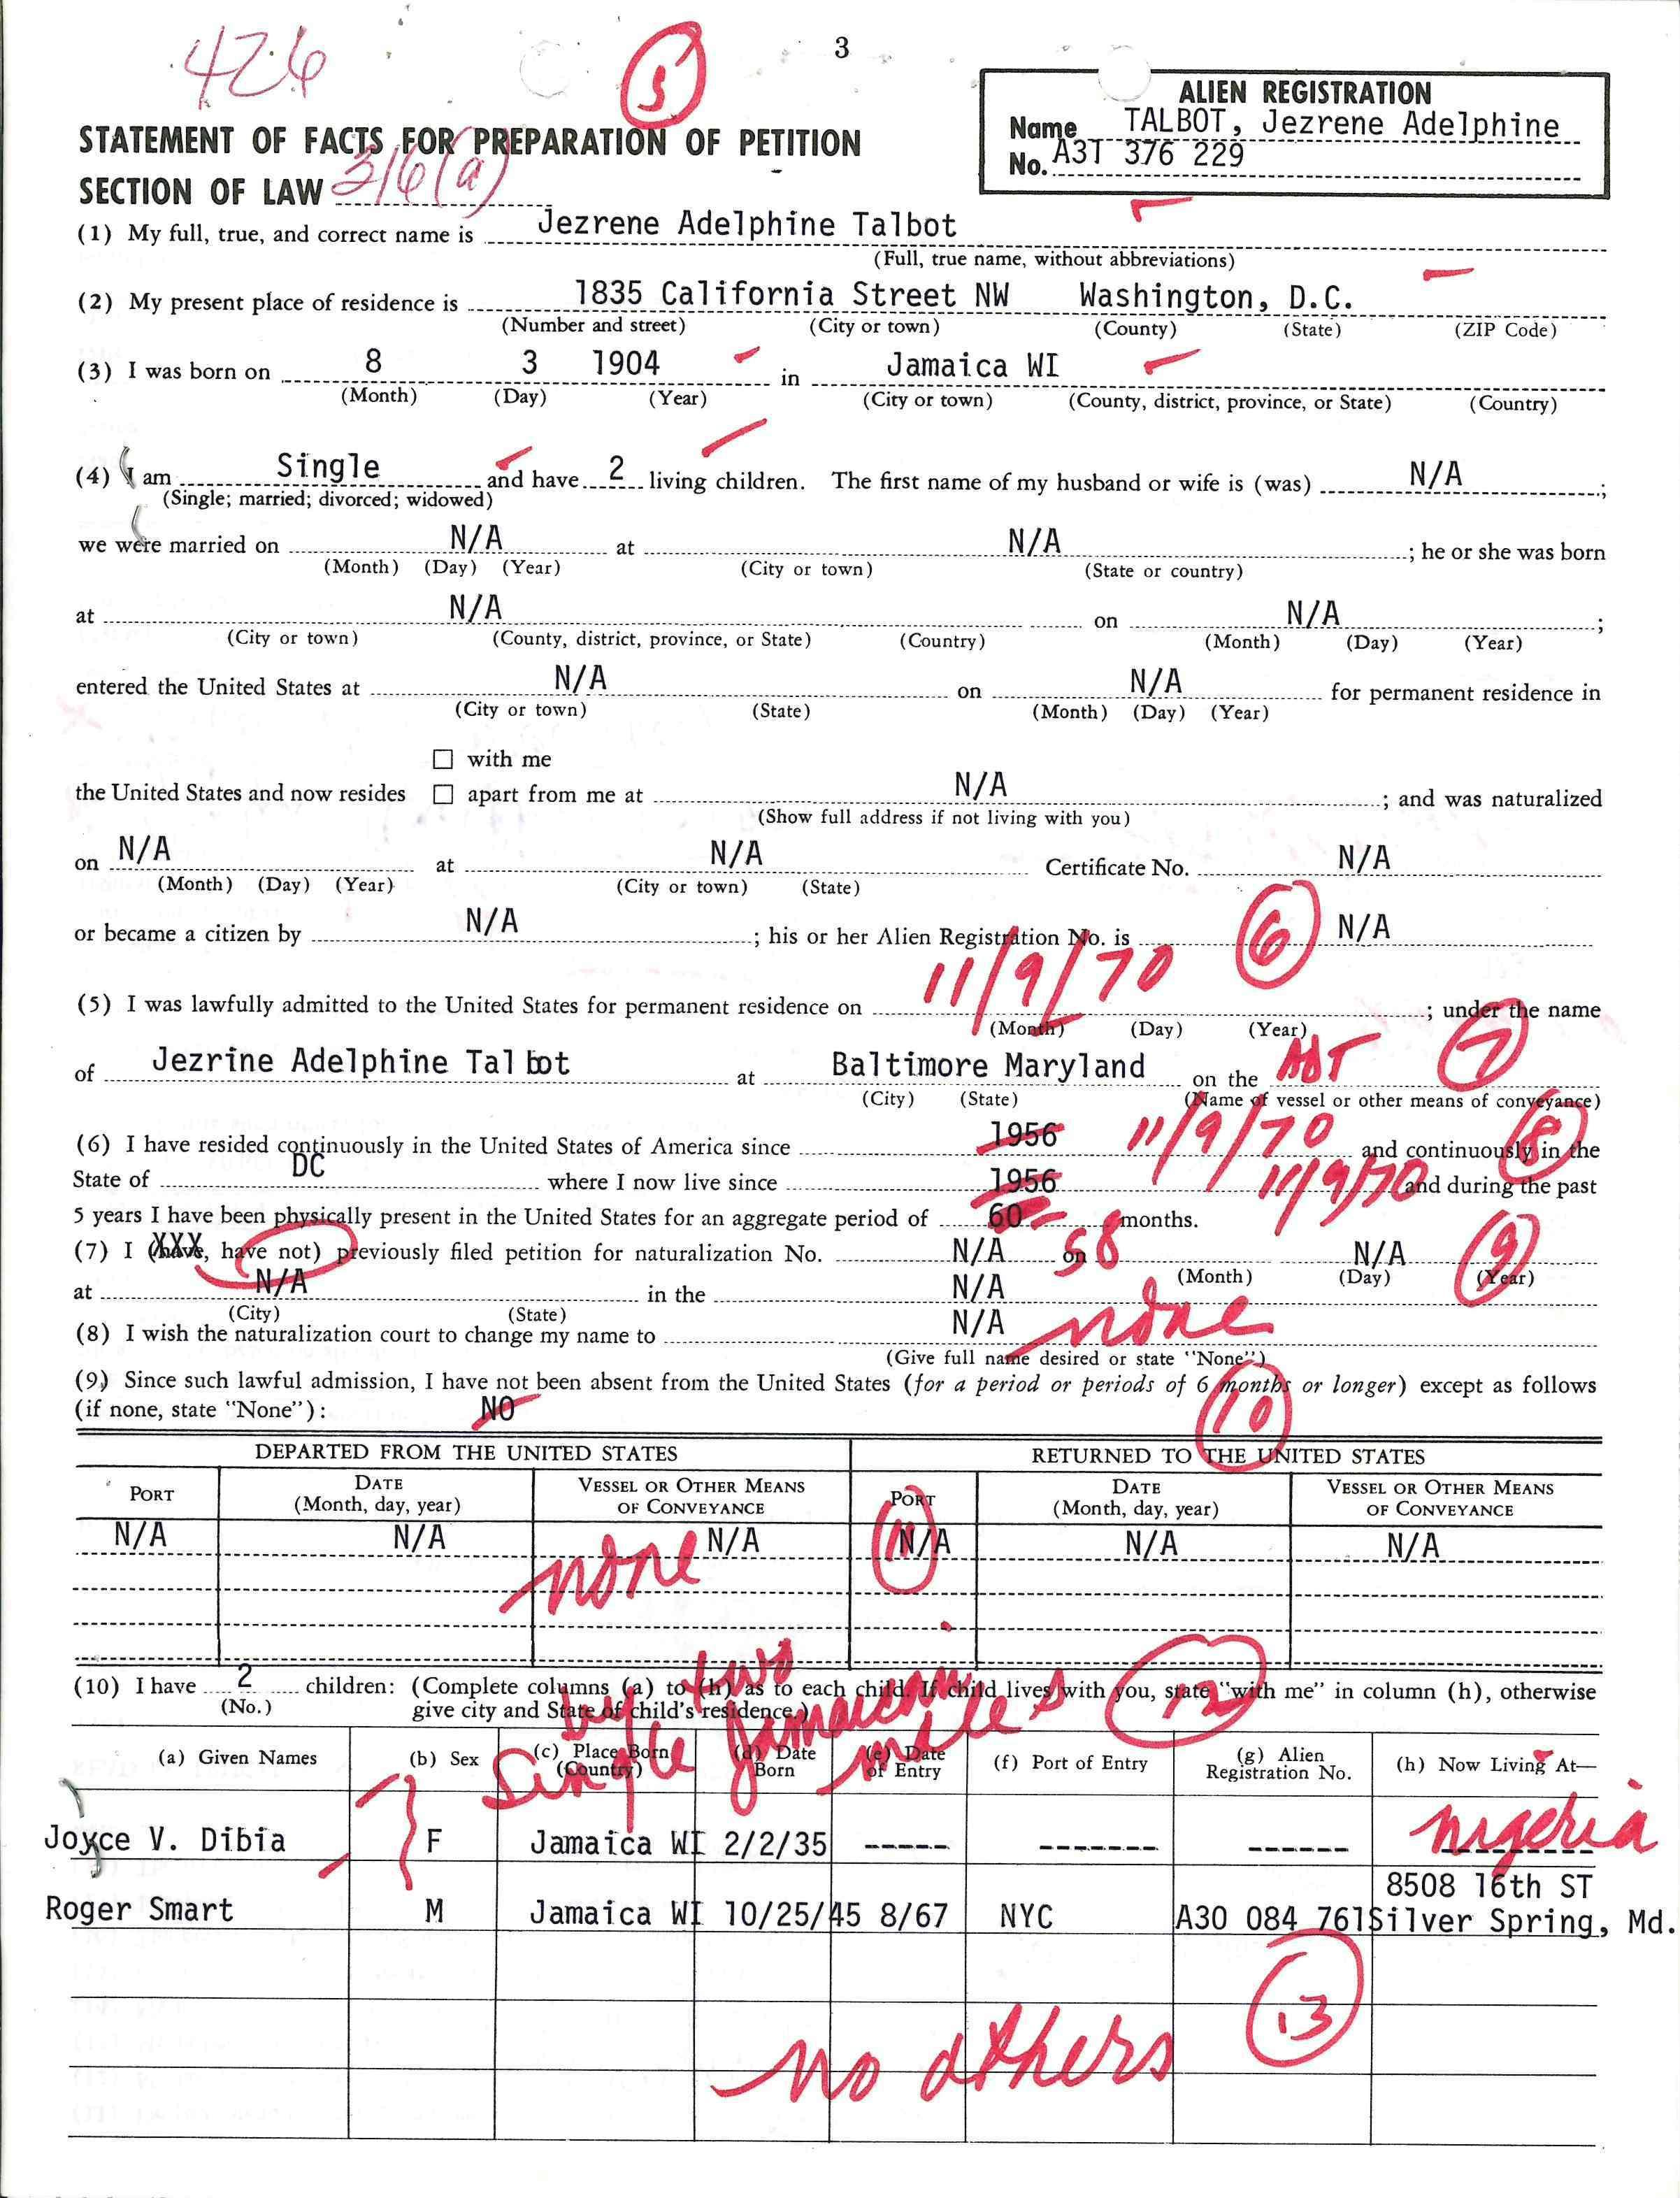 3
426
5
ALIEN REGISTRATION
Name TALBOT, Jezrene Adelphine
No. A31 376 229
STATEMENT OF FACTS FOR PREPARATION OF PETITION
SECTION OF LAW 316(a)
(1) My full, true, and correct name is Jezrene Adelphine Talbot
(Full, true name, without abbreviations)
(2) My present place of residence is 1835 California Street NW Washington, D.C.
(Number and street) (City or town) (County) (State) (ZIP Code)
(3) I was born on 8 3 1904 in Jamaica WI
(Month) (Day) (Year) (City or town) (County, district, province, or State) (Country)
(4) I am Single and have 2 living children. The first name of my husband or wife is (was) N/A ;
(Single; married; divorced; widowed)
we were married on N/A at N/A ; he or she was born
(Month) (Day) (Year) (City or town) (State or country)
at N/A on N/A ;
(City or town) (County, district, province, or State) (Country) (Month) (Day) (Year)
entered the United States at N/A on N/A for permanent residence in
(City or town) (State) (Month) (Day) (Year)
☐ with me
the United States and now resides ☐ apart from me at N/A ; and was naturalized
(Show full address if not living with you)
on N/A at N/A Certificate No. N/A
(Month) (Day) (Year) (City or town) (State)
or became a citizen by N/A ; his or her Alien Registration No. is 6 N/A
(5) I was lawfully admitted to the United States for permanent residence on 11/9/70 ; under the name
(Month) (Day) (Year)
of Jezrine Adelphine Talbot at Baltimore Maryland on the ADT 7
(City) (State) (Name of vessel or other means of conveyance)
(6) I have resided continuously in the United States of America since 1956 11/9/70 and continuously in the 8
State of DC where I now live since 1956 11/9/70 and during the past
5 years I have been physically present in the United States for an aggregate period of 60 58 months.
(7) I (have, have not) previously filed petition for naturalization No. N/A on N/A 9
(Month) (Day) (Year)
at N/A in the N/A
(City) (State)
(8) I wish the naturalization court to change my name to N/A none
(Give full name desired or state "None")
(9) Since such lawful admission, I have not been absent from the United States (for a period or periods of 6 months or longer) except as follows
(if none, state "None"): NO 10
DEPARTED FROM THE UNITED STATES RETURNED TO THE UNITED STATES
PORT DATE (Month, day, year) VESSEL OR OTHER MEANS OF CONVEYANCE PORT DATE (Month, day, year) VESSEL OR OTHER MEANS OF CONVEYANCE
N/A N/A N/A N/A N/A N/A
none 11
(10) I have 2 children: (Complete columns (a) to (h) as to each child. If child lives with you, state "with me" in column (h), otherwise
(No.) give city and State of child's residence.)
by two
Single Jamaican
males 12
(a) Given Names (b) Sex (c) Place Born (Country) (d) Date Born (e) Date of Entry (f) Port of Entry (g) Alien Registration No. (h) Now Living At—
Joyce V. Dibia F Jamaica WI 2/2/35 ----- ------- ------ nigeria
8508 16th ST
Roger Smart M Jamaica WI 10/25/45 8/67 NYC A30 084 761 Silver Spring, Md.
13
no others